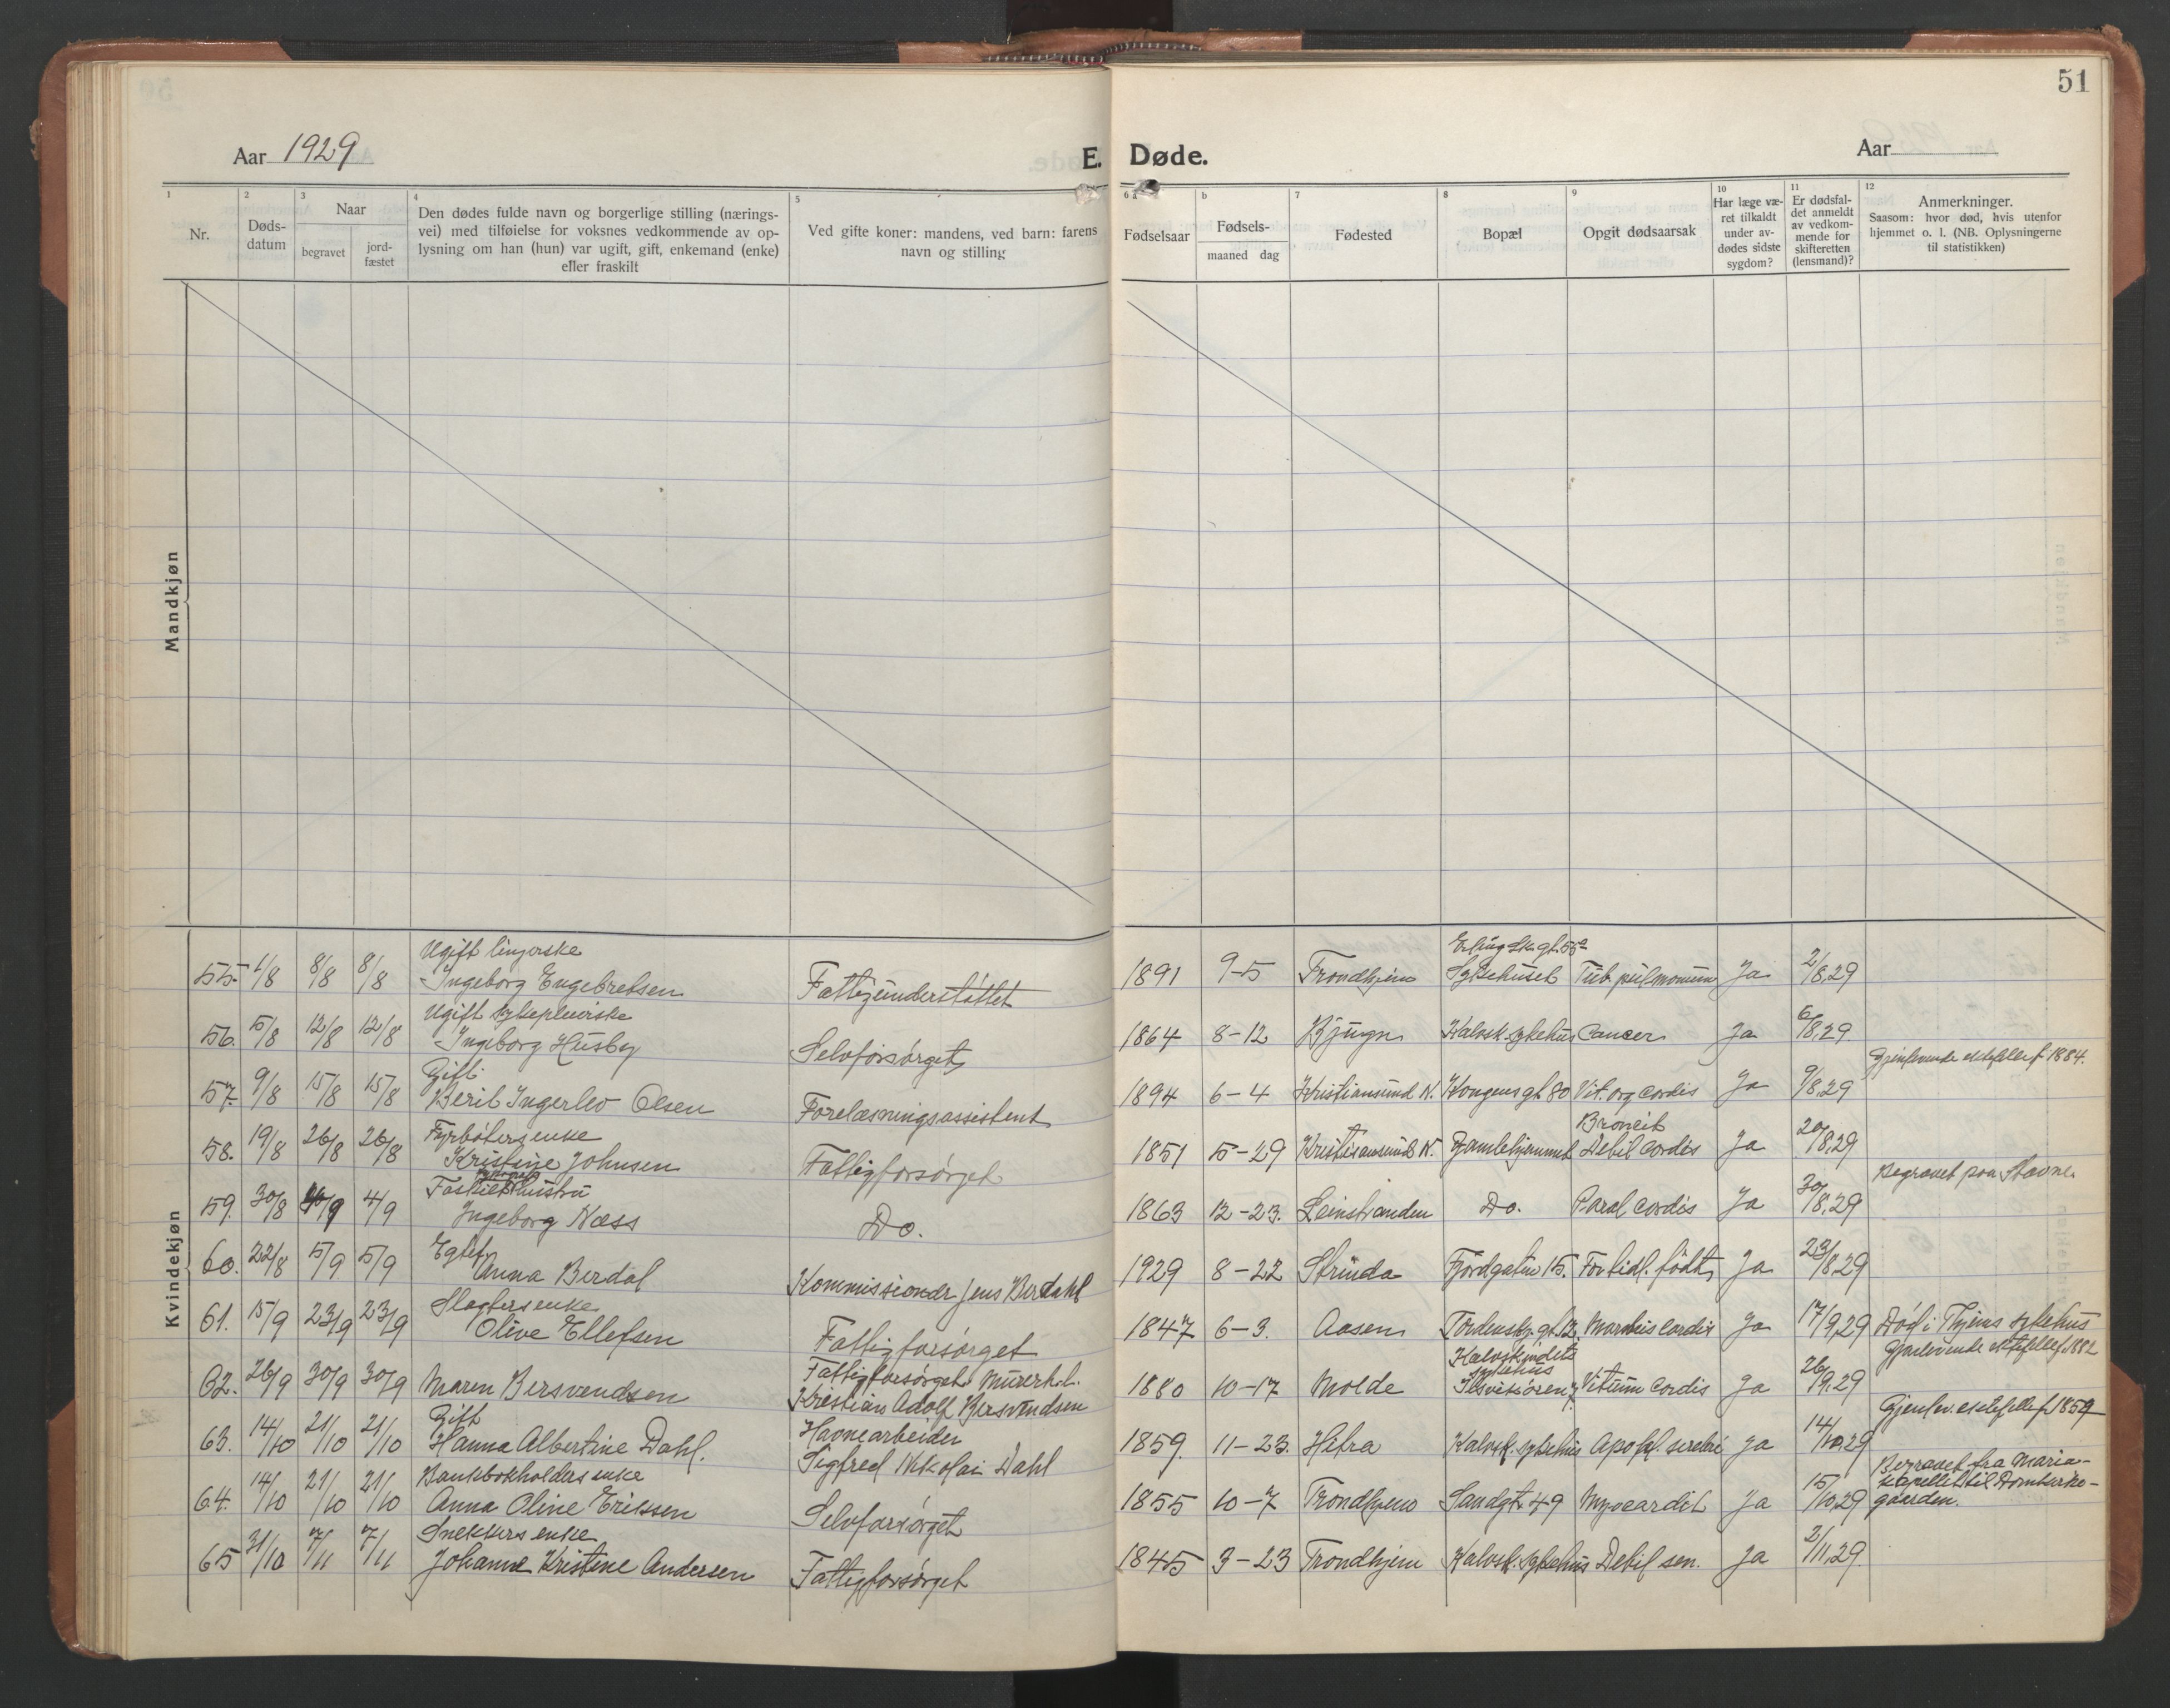 51
Aar 1929
E. Døde.
Aar
1 Nr.
2 Døds-datum
3 Naar begravet jord-fæstet
4 Den dødes fulde navn og borgerlige stilling (nærings-
vei) med tilføielse for voksnes vedkommende av op-
lysning om han (hun) var ugift, gift, enkemand (enke)
eller fraskilt
5 Ved gifte koner: mandens, ved barn: farens
navn og stilling
6 a Fødselsaar
b Fødsels- maaned dag
7 Fødested
8 Bopæl
9 Opgit dødsaarsak
10 Har læge væ-
ret tilkaldt
under av-
dødes sidste
sygdom?
11 Er dødsfal-
det anmeldt
av vedkom-
mende for
skifteretten
(lensmand)?
12 Anmerkninger.
Saasom: hvor død, hvis utenfor
hjemmet o. l. (NB. Oplysningerne
til statistikken)
Mandkjøn
Kvindekjøn
Ugift
55. 1/8 8/8 8/8 Ingeborg Engebretsen Fattigunderstøttet 1891 9-5 Trondhjem Sykehuset Tub. pulmonum Ja 2/8.29
Ugift sykepleierske
56. 5/8 12/8 12/8 Ingeborg Husby Selvforsørget 1864 8-12 Bjugn Kalvsk. sykehus Cancer Ja 6/8.29
Gift Gjenlevende ektefelle f. 1884.
57. 9/8 15/8 15/8 Berit Ingerlev Olsen Forelæsningsassistent 1894 6-4 Kristiansund N. Kongensgt. 80 Vit. org cordis Ja 9/8.29
Fyrbøters enke
58. 19/8 26/8 26/8 Kristine Johnsen Fattigforsørget 1851 5-29 Kristiansund N. Gamlehjemmet Debil cordis Ja 20/8.29
hustru Begravet paa Stavne
59. 30/8 4/9 Ingeborg Næss Do. 1863 12-23. Leinstranden Do. Paral cordis Ja 30/8.29
Egtef.
60. 22/8 5/9 5/9 Anna Berdal Kommissionær Jens Berdahl 1929 8-22 Strinda Fjordgaten 15. For tidl. født Ja 23/8.29
Slagters enke
61. 15/9 23/9 23/9 Olive Ellefsen Fattigforsørget 1847 6-3. Aasen Tordensk. gt. 12. Morbus cordis Ja 17/9.29 Død i Thjems sykehus
Fattigforsørget Murerh.l. Kalvskindets sykehus Gjenlevende ektefelle f. 1882
62. 26/9 30/9 30/9 Maren Bersvendsen Kristian Adolf Bersvendsen 1880 10-17 Molde Ilsvikøren Vitium cordis Ja 26/9.29
Gift Havnearbeider Gjenlev. ektefelle f. 1859
63. 14/10 21/10 21/10 Hanna Albertine Dahl. Sigfred Nikolai Dahl 1859. 11-23. Hitra Kalvsk. sykehus Apopl. cerebri Ja 14/10.29
Bankbokholders enke Begravet fra Maria-
kapellet til Domkirke-
64. 14/10 21/10 21/10 Anna Oline Erikssen Selvforsørget 1855 10-7 Trondhjem Sandgt. 49 Myocardit Ja 15/10.29 gaarden.
Snekkers enke
65 31/10 7/11 7/11 Johanne Kristine Andersen Fattigforsørget 1845 3-23 Trondhjem Kalvsk. sykehus Debil sen. Ja 2/11.29.